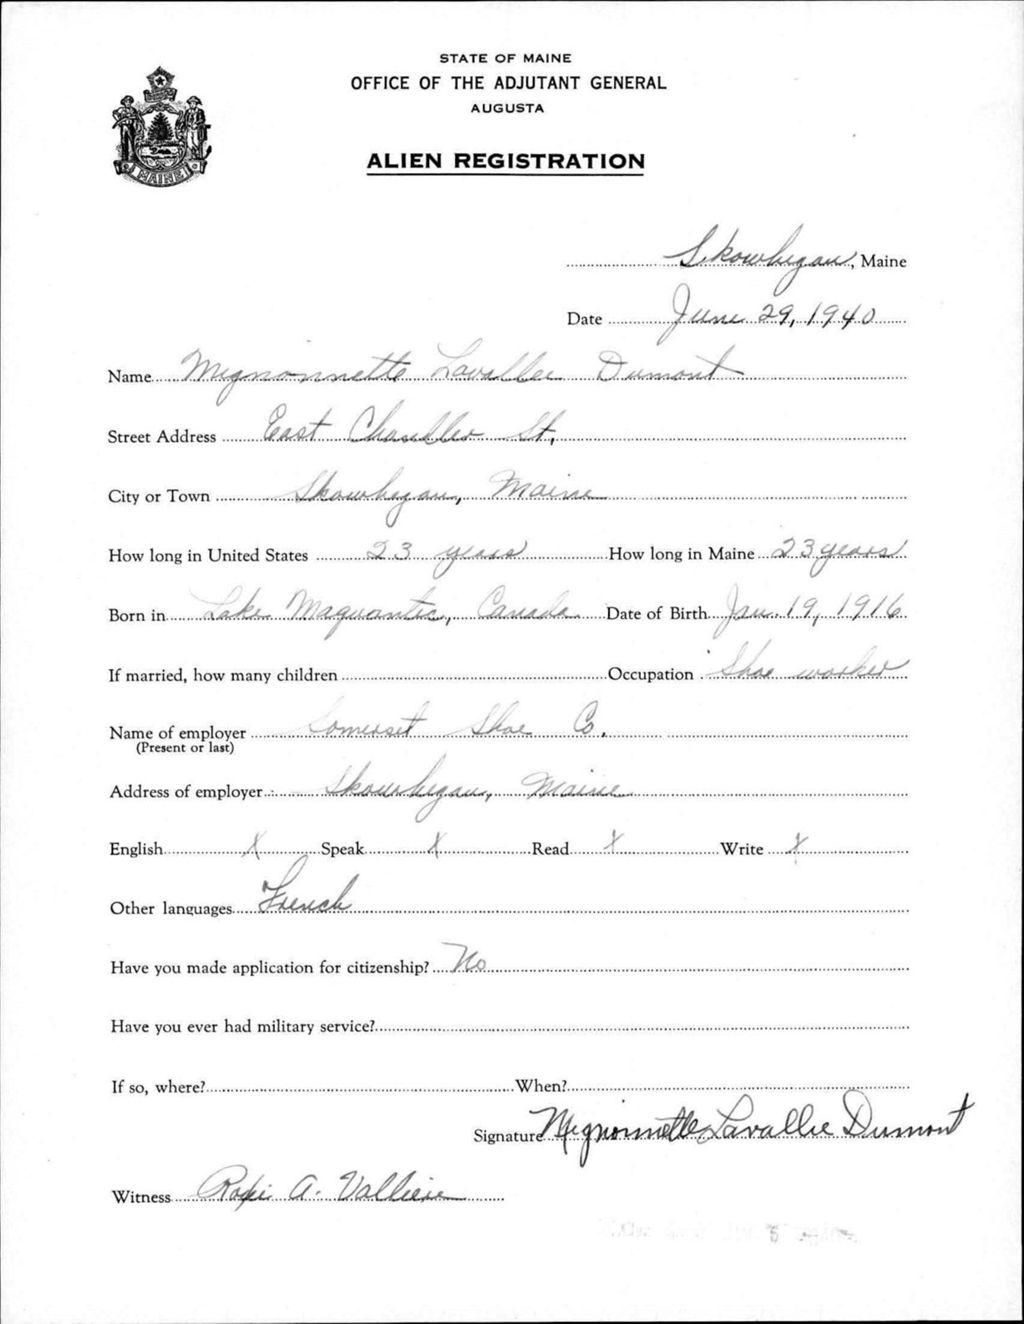 STATE OF MAINE
OFFICE OF THE ADJUTANT GENERAL
AUGUSTA
ALIEN REGISTRATION
MAINE
Skowhegan, Maine
Date June 29, 1940
Name Mignonnette Lavallee Dumont
Street Address East Chandler St.
City or Town Skowhegan, Maine
How long in United States 23 years How long in Maine 23 years
Born in Lake Maguantic, Canada Date of Birth Jan. 19, 1916
If married, how many children Occupation Shoe worker
Name of employer Somerset Shoe Co.
(Present or last)
Address of employer Skowhegan, Maine
English X Speak X Read X Write X
Other languages French
Have you made application for citizenship? No
Have you ever had military service?
If so, where? When?
Signature Mignonnette Lavallie Dumont
Witness A. Valliere